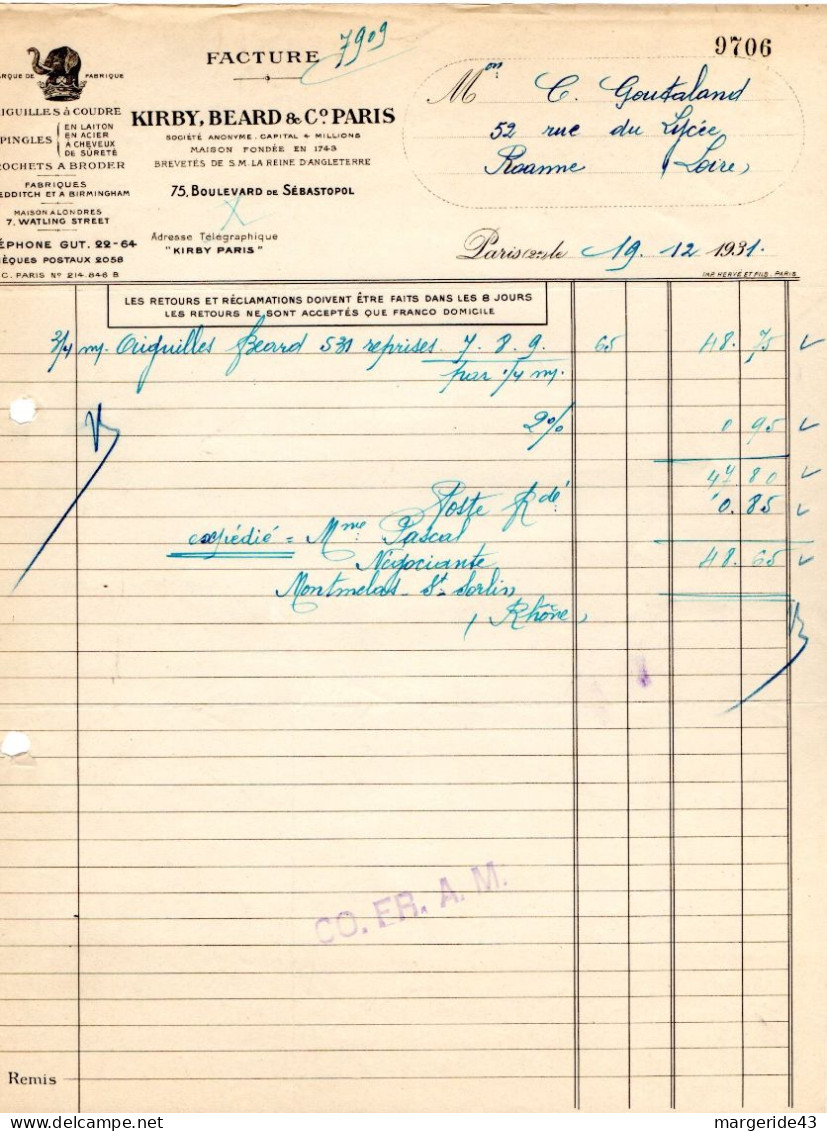 FACTURE 7909
9706
MARQUE DE FABRIQUE
AIGUILLES à COUDRE
EPINGLES EN LAITON
EN ACIER
A CHEVEUX
DE SÛRETÉ
CROCHETS A BRODER
FABRIQUES
REDDITCH ET A BIRMINGHAM
MAISON A LONDRES
7, WATLING STREET
TÉLÉPHONE GUT. 22-64
CHÈQUES POSTAUX 2058
R.C. PARIS Nº 214.846 B
KIRBY, BEARD & Cº PARIS
SOCIÉTÉ ANONYME. CAPITAL 4 MILLIONS
MAISON FONDÉE EN 1743
BREVETÉS DE S.M. LA REINE D'ANGLETERRE
75, BOULEVARD DE SÉBASTOPOL
Adresse Télégraphique
"KIRBY PARIS"
Mon C. Goutaland
52 rue du Lycée
Roanne (Loire)
Paris (2e) le 19. 12 1931.
IMP. HERVÉ ET FILS. PARIS
LES RETOURS ET RÉCLAMATIONS DOIVENT ÊTRE FAITS DANS LES 8 JOURS
LES RETOURS NE SONT ACCEPTÉS QUE FRANCO DOMICILE
3/4 m. Aiguilles Beard 531 reprises. 7. 8. 9. 65 48. 75
par 1/4 m.
2% 0 95
47. 80
Poste Rdé 0. 85
expédié = Mme Pascal
Négociante 48. 65
Montmelas - St. Sorlin
(Rhône)
CO. FR. A. M.
Remis
margeride43